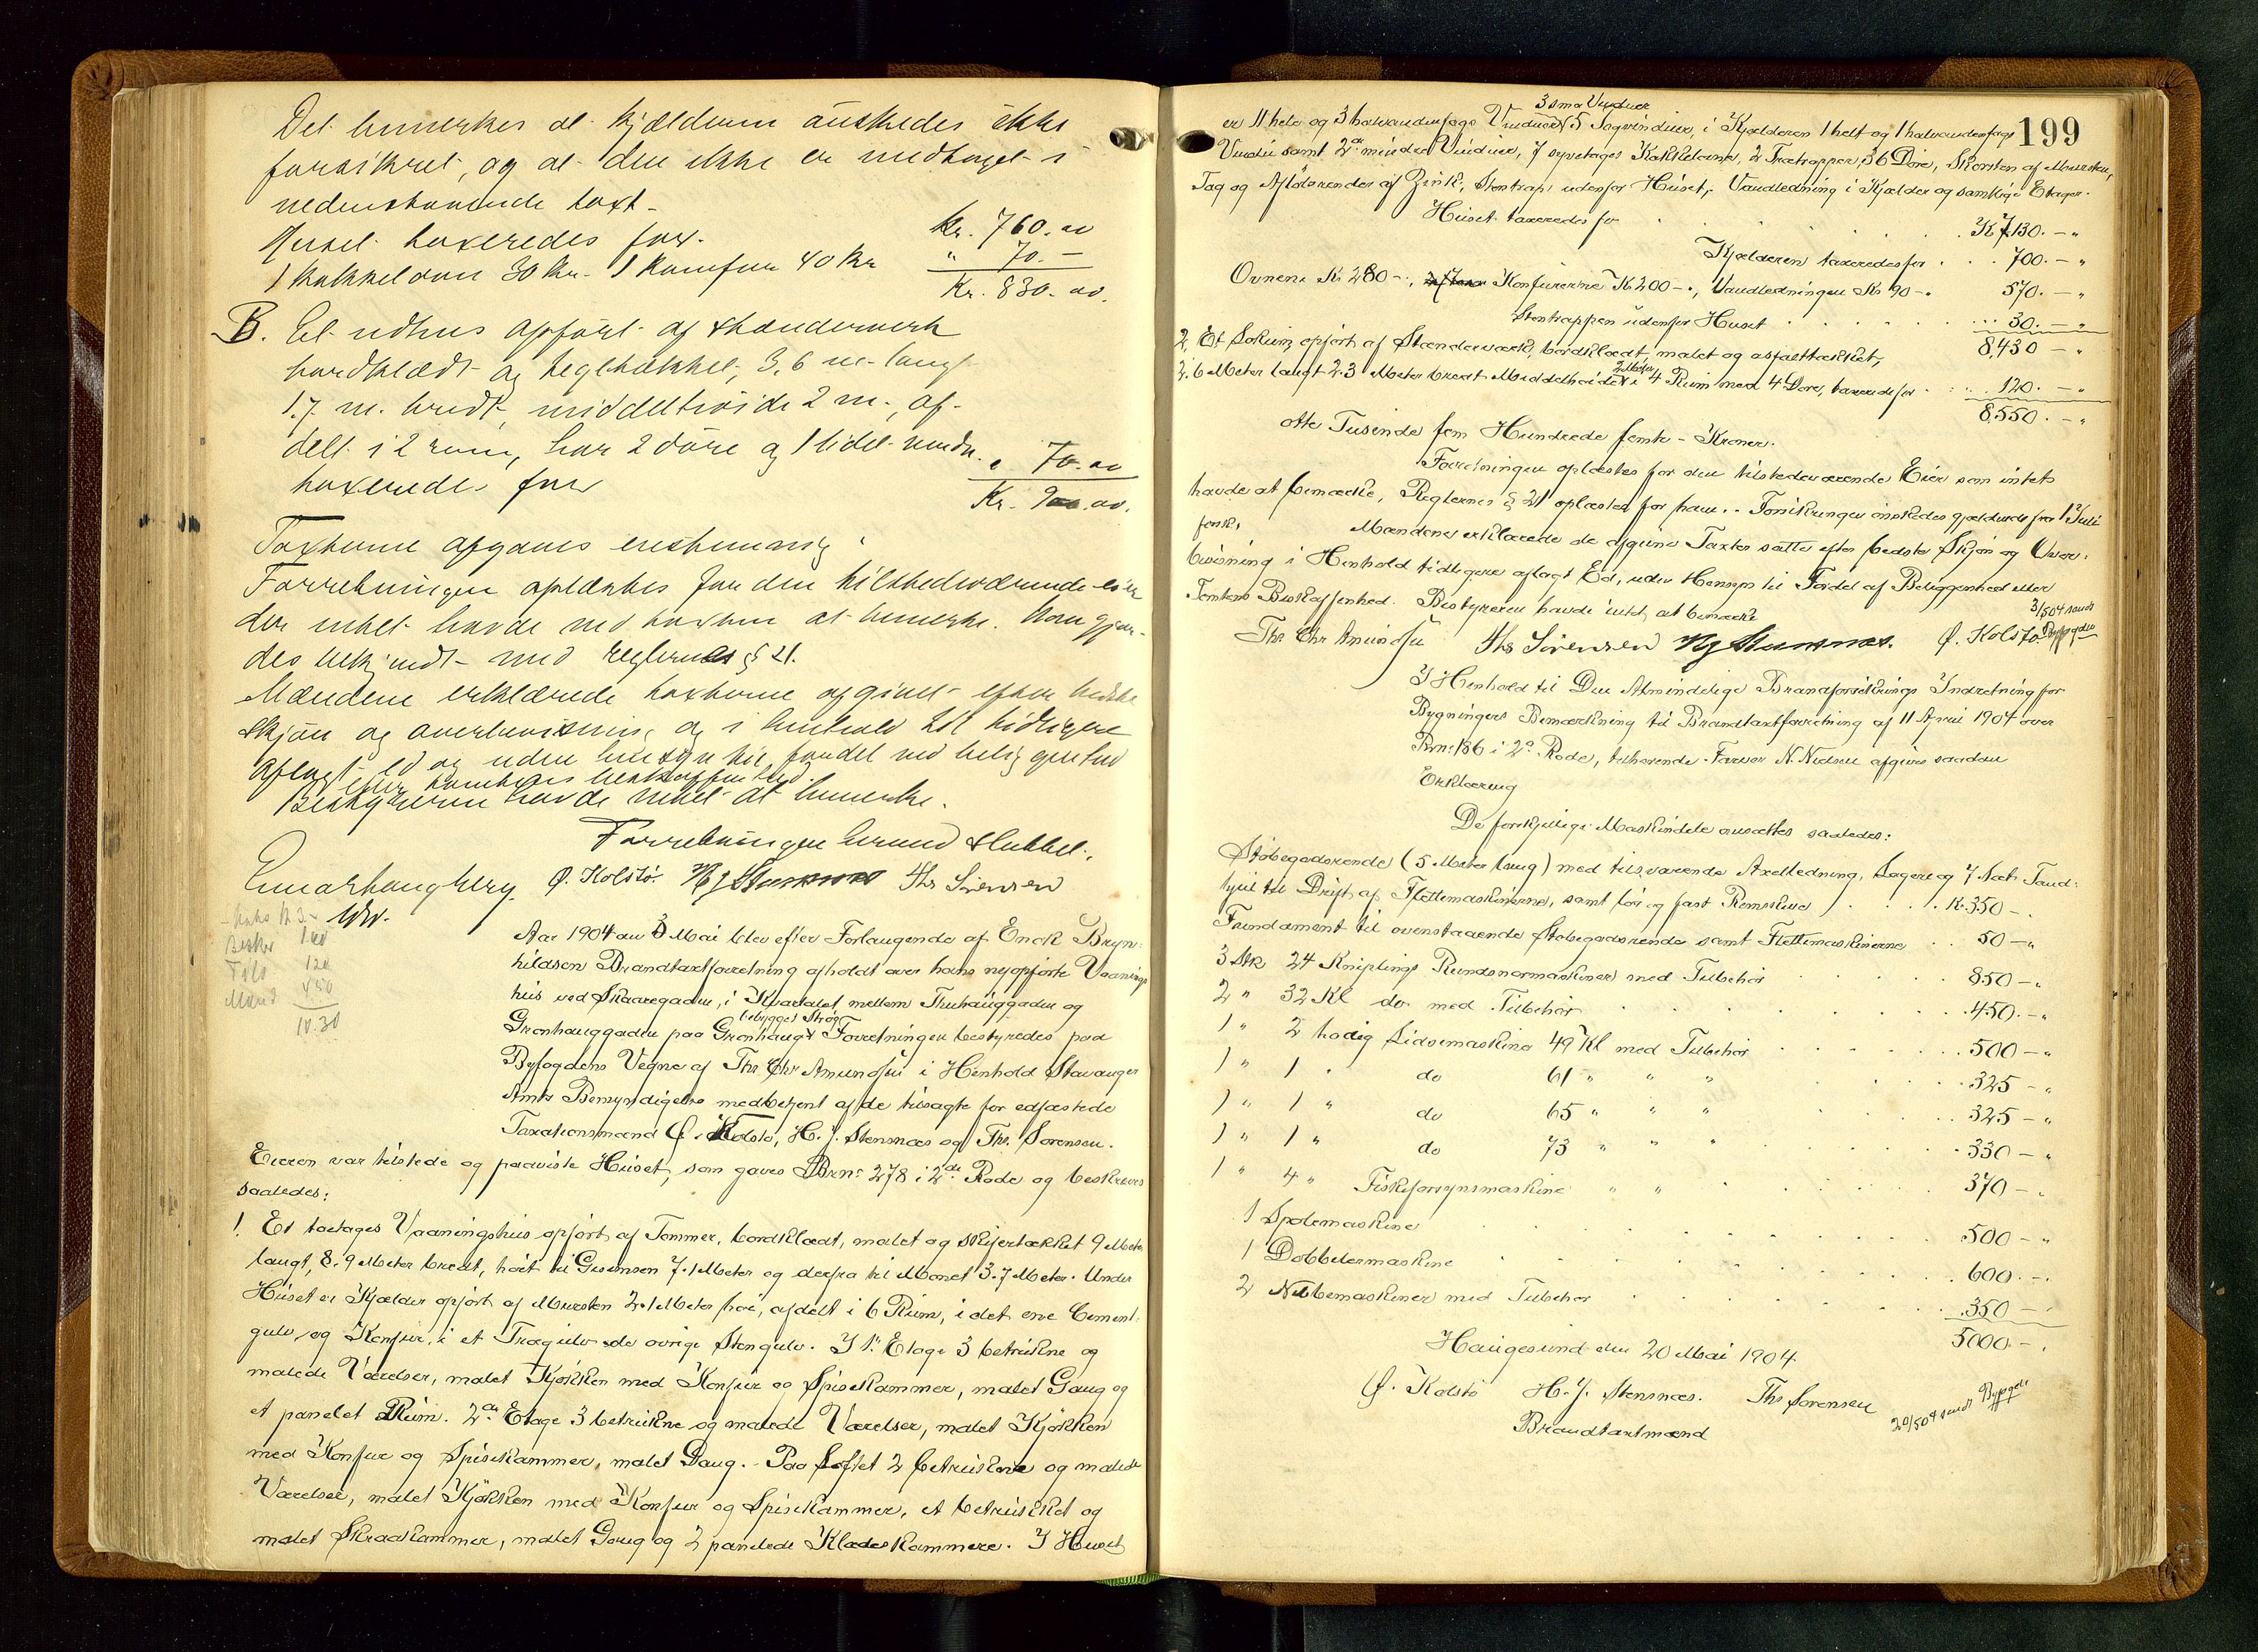 Det bemerkes at kjælderen önskedes ikke
forsikret, og at den ikke er medtaget i
nedenstaaende taxt.
Huset taxeredes for. Kr. 760.00
1 kakkelovn 30 Kr. 1 komfur 40 Kr " 70.–
Kr. 830.00.
B. Et udhus opfört af stænderverk
bordklædt og teglhækket, 3,6 m. langt
1.7 m. bredt, middelhöide 2 m., af-
delt i 2 rum, har 2 döre og 1 lidet vindu.
taxeredes for " 70.00
Kr. 900.00.
Taxterne afgaves enstemmig.
Forretningen oplæstes for den tilstedeværende eier
der intet havde ved taxten at bemerke. Han gjör-
des bekjendt med reglernes § 21.
Mændene erklærede taxterne afgivet efter bedste
skjön og overbevisning og i henhold til tidligere
aflagt ed og uden hensyn til fordel ved beliggenhed
eller tomtens beskaffenhed.
Bestyreren havde intet at bemerke.
Forretningen herved sluttet.
Einar Haugberg. Ø. Kolstö. H J Stensnæs Ths Sörensen
cdw.
Beskr 100
Tils 120
Mænd 450
10.30
Aar 1904 den 3 Mai blev efter Forlangende af Enok Bryn-
hildsen Brandtaxtforretning afholdt over hans nyopförte Vaanings
hus ved Skaaregaden, i Kvartalet mellem Thuhauggaden og
bebygget Strög
Grönhauggaden paa Grönhaug. Forretningen bestyredes paa
Byfogdens Vegne af Ths Chr Amundsen i Henhold Stavanger
Amts Bemyndigelse medbetjent af de tilsagte for edfæstede
Taxationsmænd Ø. Kolstö, H. J. Stensnæs og Ths. Sörensen.
Eieren var tilstede og paaviste Huset, som gaves Brn: 278 i 2de Rode og beskreves
saaledes:
1. Et toetages Vaaningshus opfört af Tömmer, bordklædt, malet og skifertækket 9 Meter
langt, 8.9 Meter bredt, höit til Gesimsen 7.1 Meter og derfra til Mönet 3.7 Meter. Under
Huset er Kjælder opfört af Mursten 2.1 Meter höi, afdelt i 6 Rum, i det ene Cement-
gulv og Konfur, i et Trægulv de övrige Stengulv. I 1. Etage 3 betrukne og
malede Værelser, malet Kjökken med Konfur og Spisekammer, malet Gang og
et panelet Rum. 2de Etage 3 betrukne og malede Værelser, malet Kjökken
med Konfur og Spisekammer, malet Gang. Paa Loftet 2 betrukne og malede
Værelser, malet Kjökken med Konfur og Spisekammer, et betrukket og
malet Skraakammer, malet Gang og 2 panelede Klædeskammere. I Huset
199
3 smaa Vinduer
er 11 hele og 3 halvandenfags Vinduer, 5 Fagvinduer, i Kjælderen 1 helt og 1 halvandenfags
Vindu samt 2de mindre Vinduer, 7 syvetages Kakkelovne, 2 Trætrapper, 36 Döre, Skorsten af Mursten,
Tag og Aflöbsrender af Zink, Stentrap udenfor Huset, Vandledning i Kjælder og samtlige Etager.
Huset taxeredes for Kr 7130.– "
Kjælderen taxeredes for 700.– "
Ovnene Kr 280–, Konfurerne Kr 200–, Vandledningen Kr 90–. 570.– "
Stentrappen udenfor Huset 30.– "
8,430 – "
2. Et Sokrum opfört af Stænderværk, bordklædt, malet og asfalttækket,
2.6 Meter langt 2.3 Meter bredt Middelhöide 2 Meter i 4 Rum med 4 Döre, taxeredes for 120.– "
8,550.– "
otte Tusinde fem Hundrede femti – Kroner.
Forretningen oplæstes for den tilstedeværende Eier som intet
havde at bemærke, Reglernes § 21 oplæstes for ham. - Forsikringen önskedes gjældende fra 1 Juli
förstk. Mændene erklærede de afgivne Taxter satte efter bedste Skjön og Over-
bevisning i Henhold tidligere aflagt Ed, uden Hensyn til Fordel af Beliggenhed eller
Tomtens Beskaffenhed. Bestyreren havde intet at bemærke
Ths Chr Amundsen Ths Sörensen H J Stensnæs. Ø. Kolstö. 3/5 04 sendt Byfogden
I Henhold til Den Almindelige Brandforsikrings Indretning for
Bygningers Bemærkning til Brandtaxtforretning af 11 April 1904 over
Brn: 186 i 2de Rode, tilhörende Farver N. Nielsen afgives saadan
Erklæring
De forskjellige Maskindele ansættes saaledes:
Stöbegodsrende (5 Meter lang) med tilsvarende Axelledning, Lagere og 7 Sæt Tand-
hjul til Drift af Flettemaskinerne, samt lös og fast Remskive Kr. 350 –.
Fundament til ovenstaaende Stöbegodsrende samt Flettemaskinerne 50 – "
3 Stk 24 Kniplings Rundsnormaskiner med Tilbehör 850 – "
2 " 32 Kl do med Tilbehör 450. – "
1 " 2 hodig Lidsemaskine 49 Kl med Tilbehör 500 – "
1 " 1 " do 61 " " " 325 – "
1 " 1 " do 65 " " " 325 – "
1 " 1 " do 73 " " " 330 – "
1 " 4 " Fiskeforsynsmaskine " " 370 – "
1 Spolemaskine 500 – "
1 Dobbelermaskine 600. – "
2 Nubbemaskiner med Tilbehör 350 – "
5000. – "
Haugesund den 20 Mai 1904.
Ø. Kolstö H. J. Stensnæs. Ths Sörensen 20/5 04 sendt Byfogden
Brandtaxtmænd